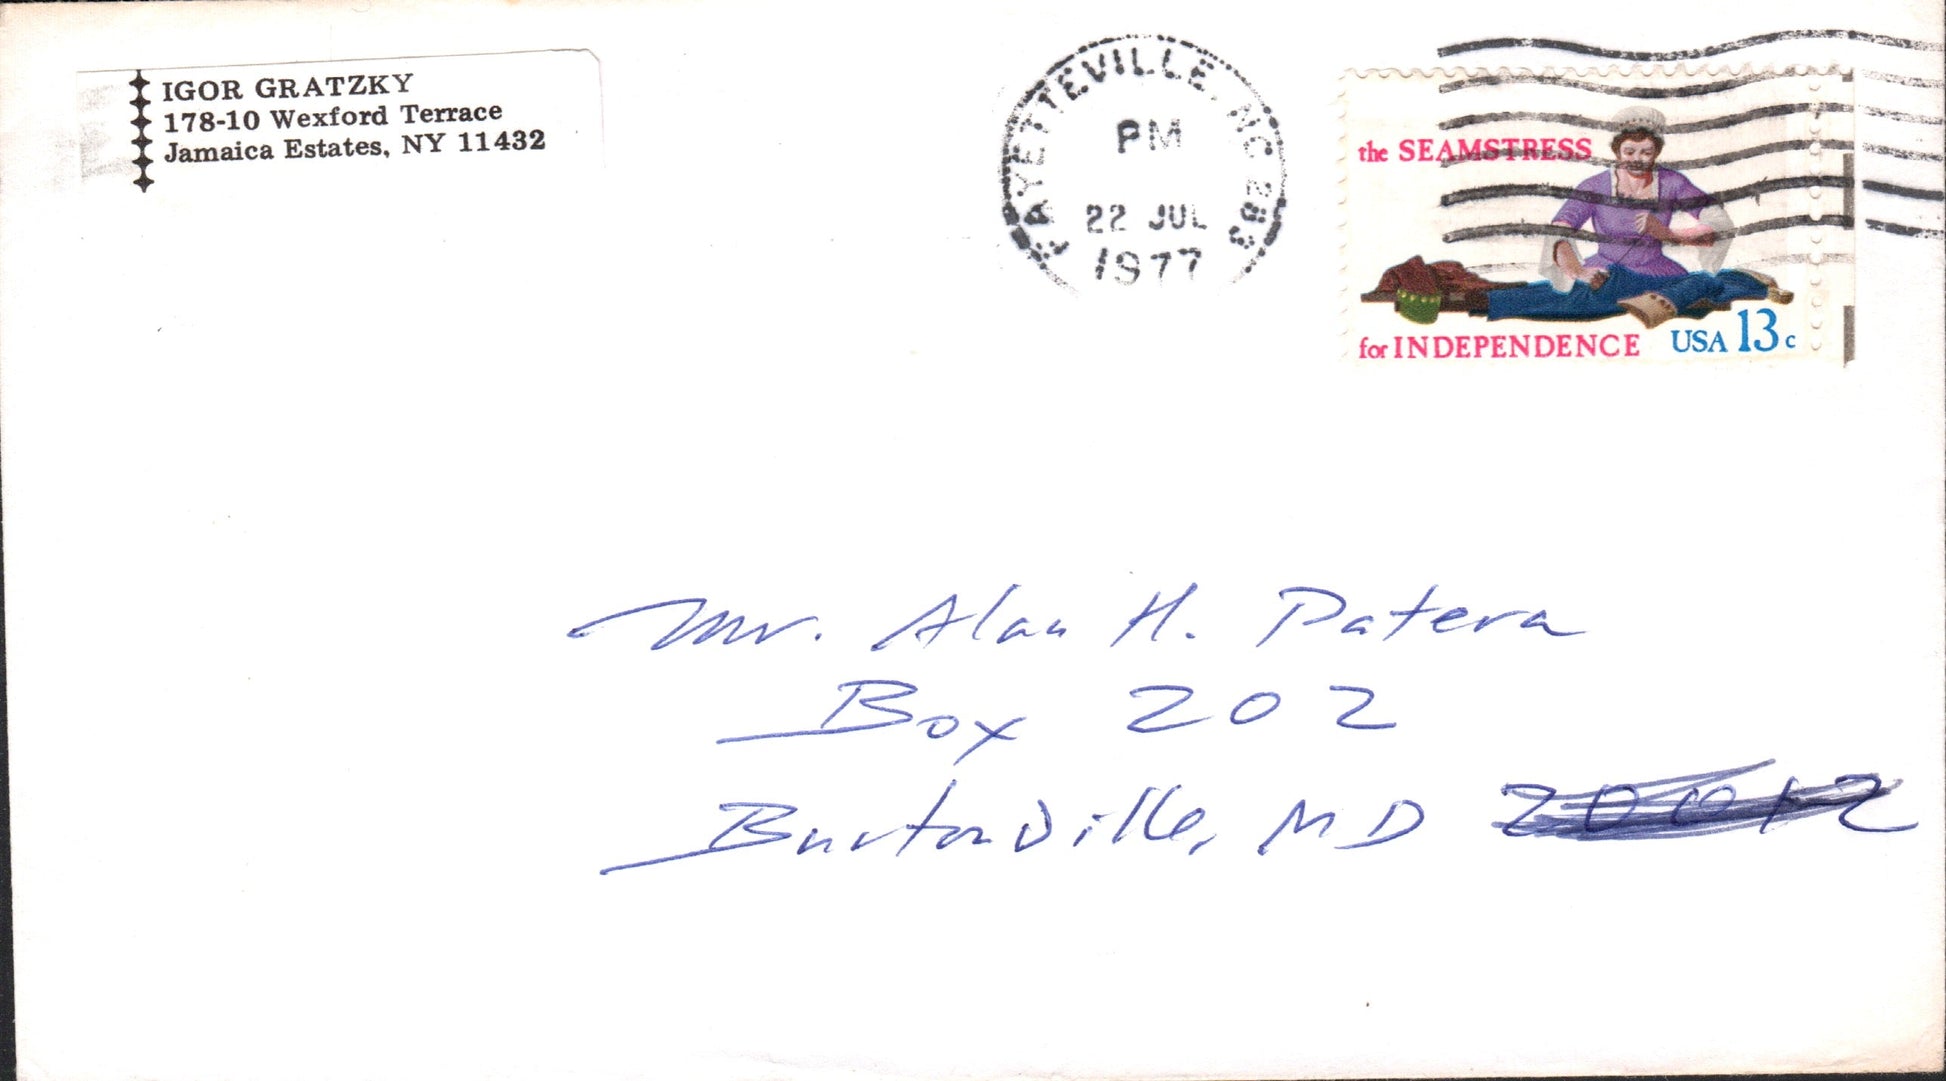 IGOR GRATZKY
178-10 Wexford Terrace
Jamaica Estates, NY 11432
FAYETTEVILLE, NC 283
PM
22 JUL
1977
the SEAMSTRESS
for INDEPENDENCE USA 13c
Mr. Alan H. Patera
Box 202
Burtonville, MD 20012